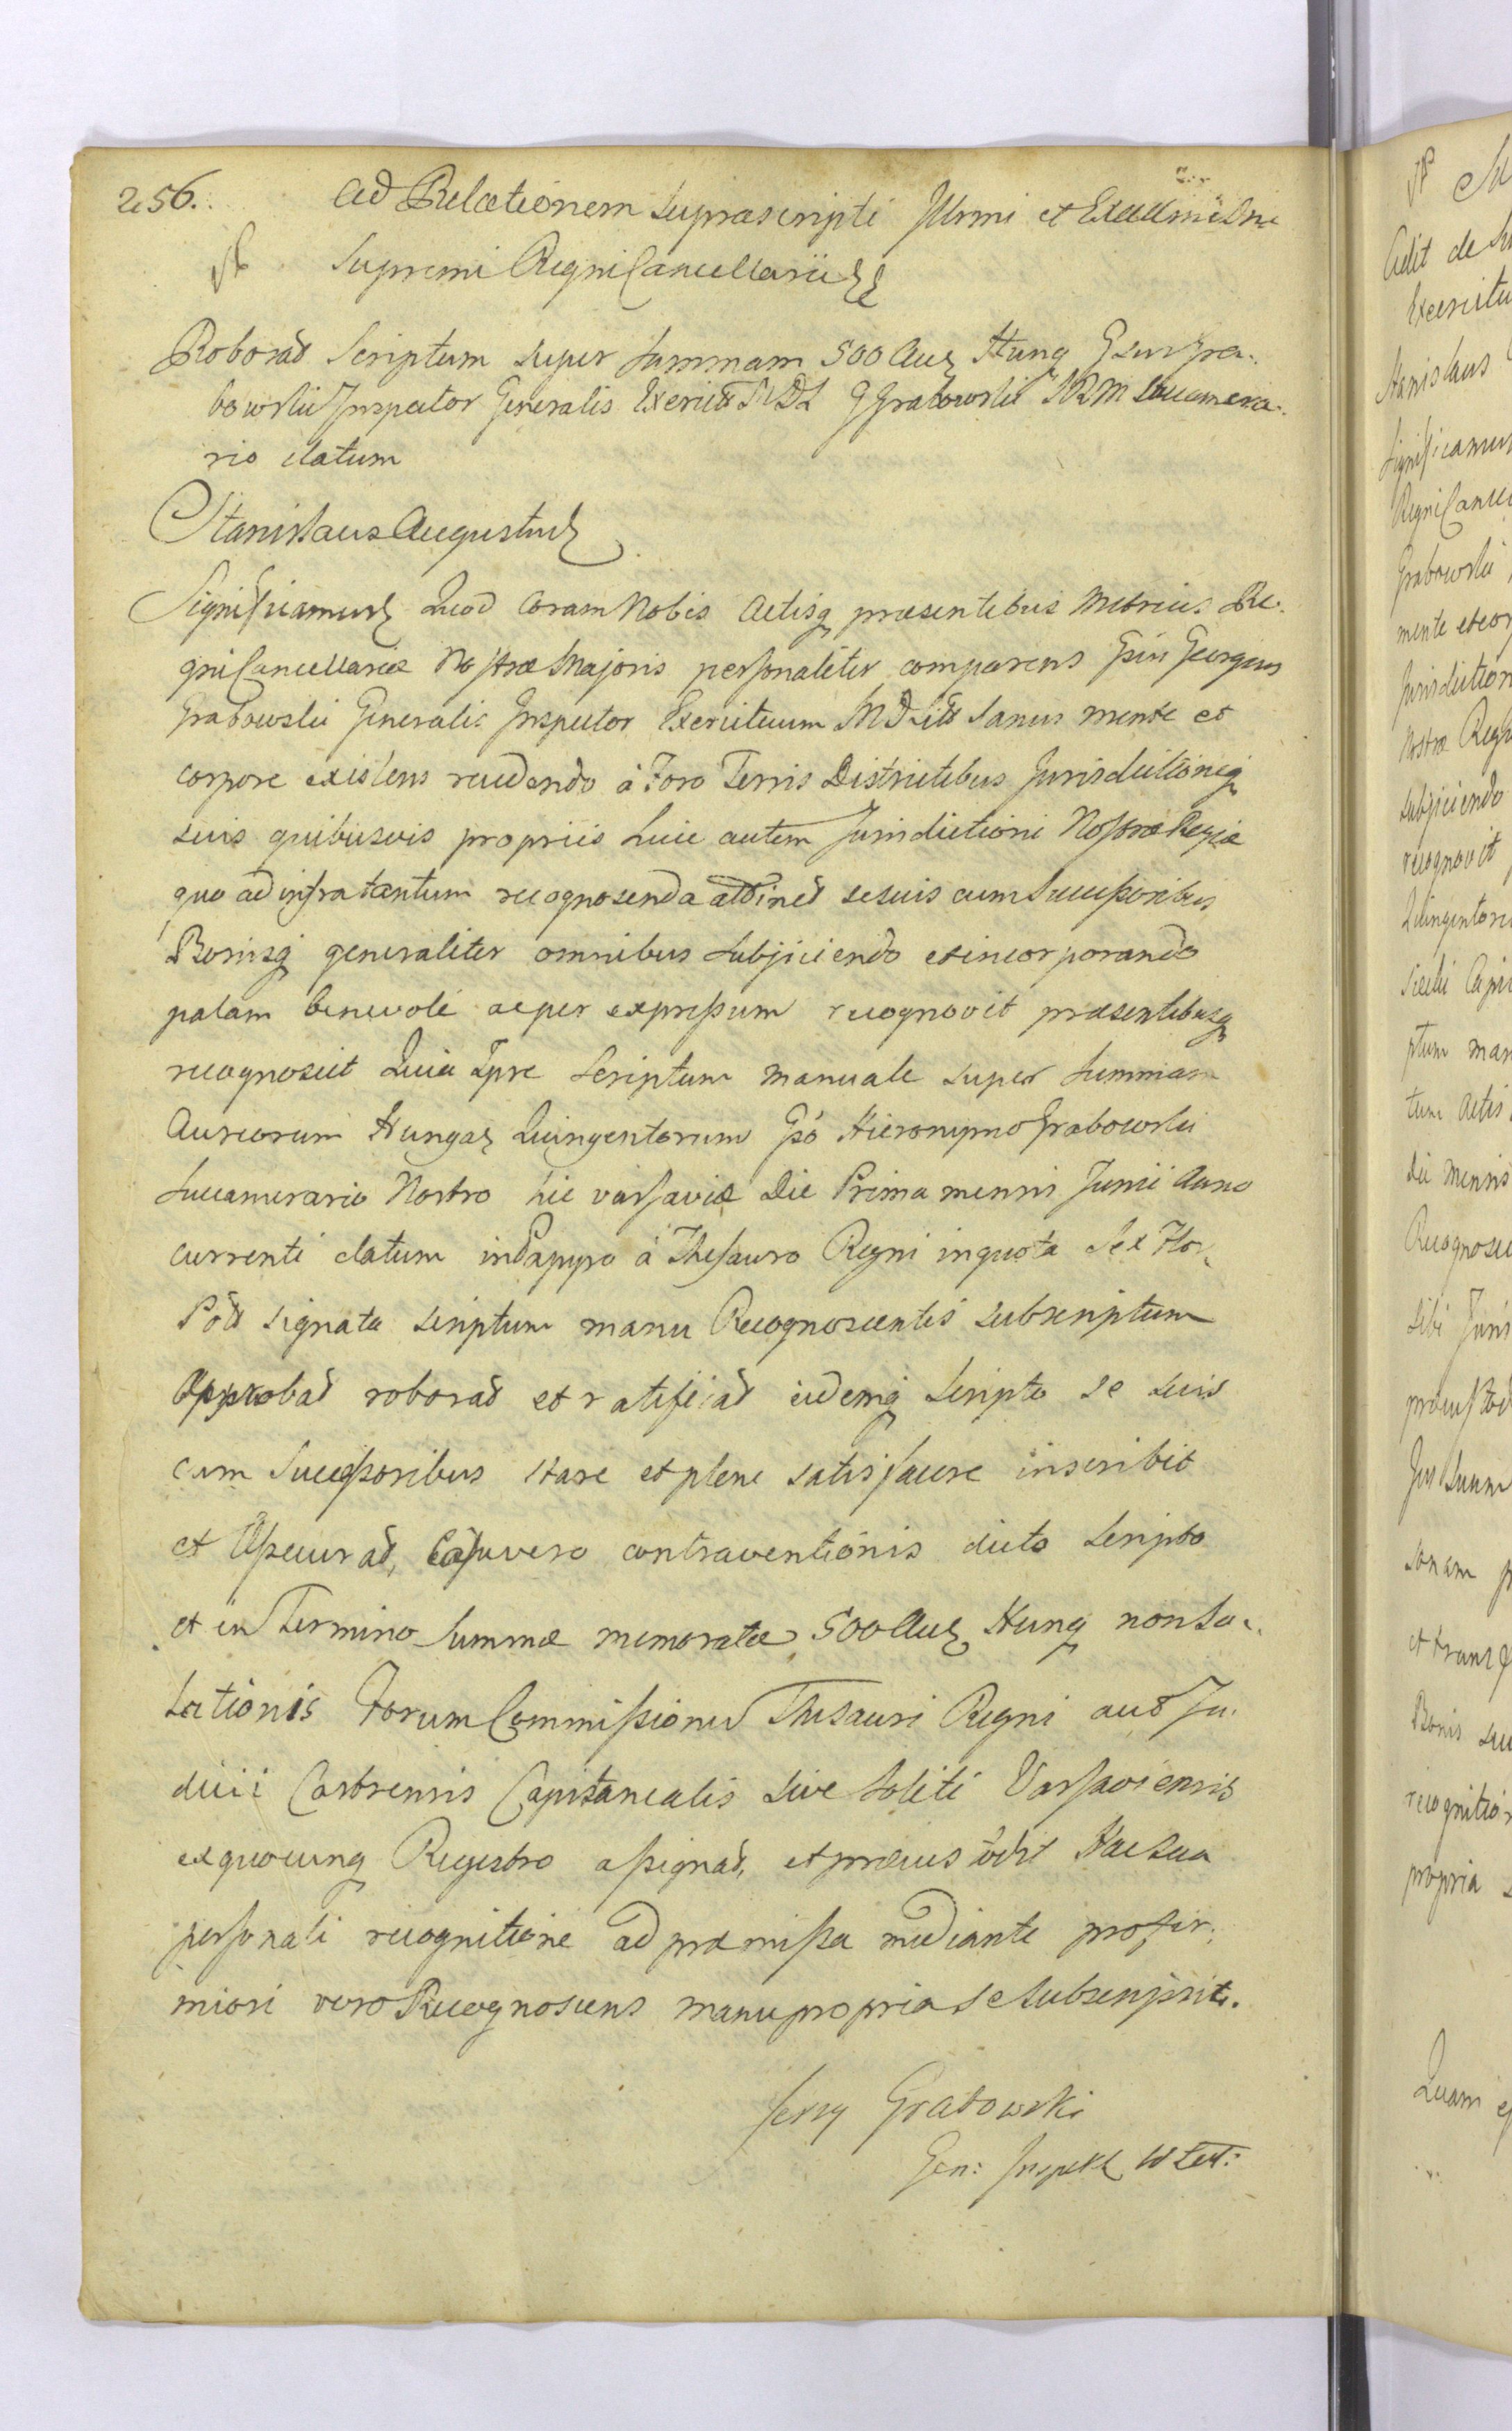 256.
Ad Relationem suprascripti Illrmi et Excellmi Dni
Supremi Regni Cancellarii
Roborat Scriptum super summam 500 Aur Hung Gsus Gra-
bowskii Inspector Generalis Exercit MDL G Grabowskii SRM Succamera-
rio datum
Stanislaus Augustus
Significamus Quod Coram Nobis Actisq præsentibus Metrices Re-
gni Cancellariæ Nostræ Majoris personaliter comparens Gsus Georgius
Grabowskii Generalis Inspector Exercituum MD Litt Sanus mente et
corpore existens recedendo à Foro Terris Districtibus Jurisdictioneq
suis quibusvis propriis huic autem Jurisdictioni Nostræ Regiæ
quo ad infra tantum recognoscenda attinet se suis cum Successoribus
Bonisq generaliter omnibus subjiciendo et incorporando
palam benevole ac per expressum recognovit præsentibusq
recognoscit Quia Ipse Scriptum manuale super Summam
Aureorum Hungar Quingentorum Gso Hieronymo Grabowskii
Succamerario Nostro hic Varsaviæ Die Prima mensis Junii Anno
currenti datum in Papyro à Thesauro Regni in quota Sex Flor
Poll signata scriptum manu Recognoscentis subscriptum
Approbat roborat et ratificat eidemq Scripto se suis
cum Successoribus stare et plene satisfacere inscribit
et Assecurat, Casu vero contraventionis dicto Scripto
et in Termino Summæ memoratæ 500 Aur Hung non so-
lutionis Forum Commissionis Thesauri Regni aut Ju-
dicii Castrensis Capitanealis sive soliti Varsaviensis
ex quocunq Registro assignat, et præcustodit Hac sua
personali recognitione ad præmissa mediante pro fir-
miori vero Recognoscens manu propria se subscripsit.
Jerzy Grabowski
Gen: Inspekt W Lit: